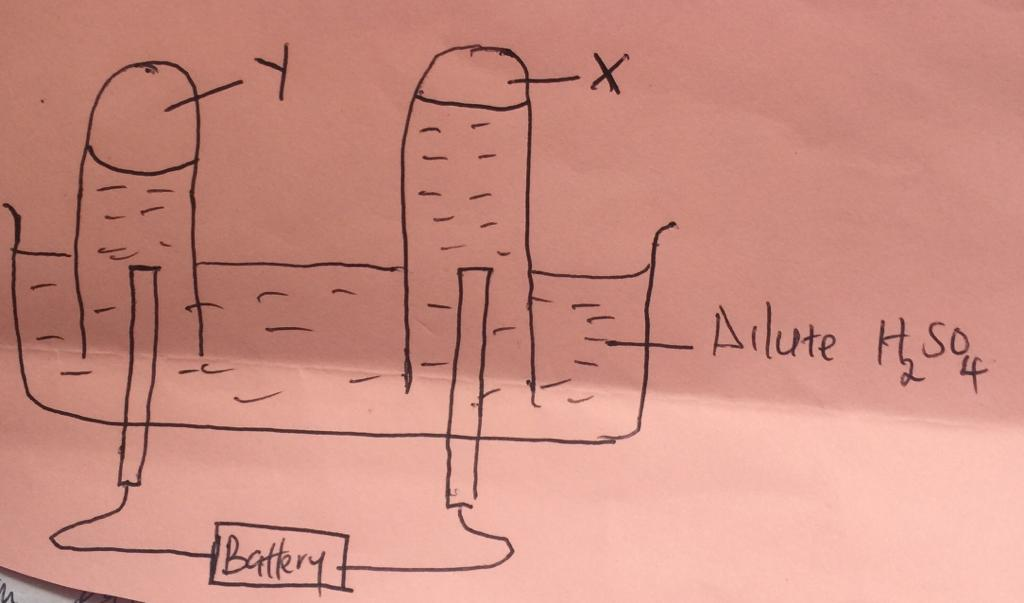 Y
X
Dilute H₂SO₄
Battery